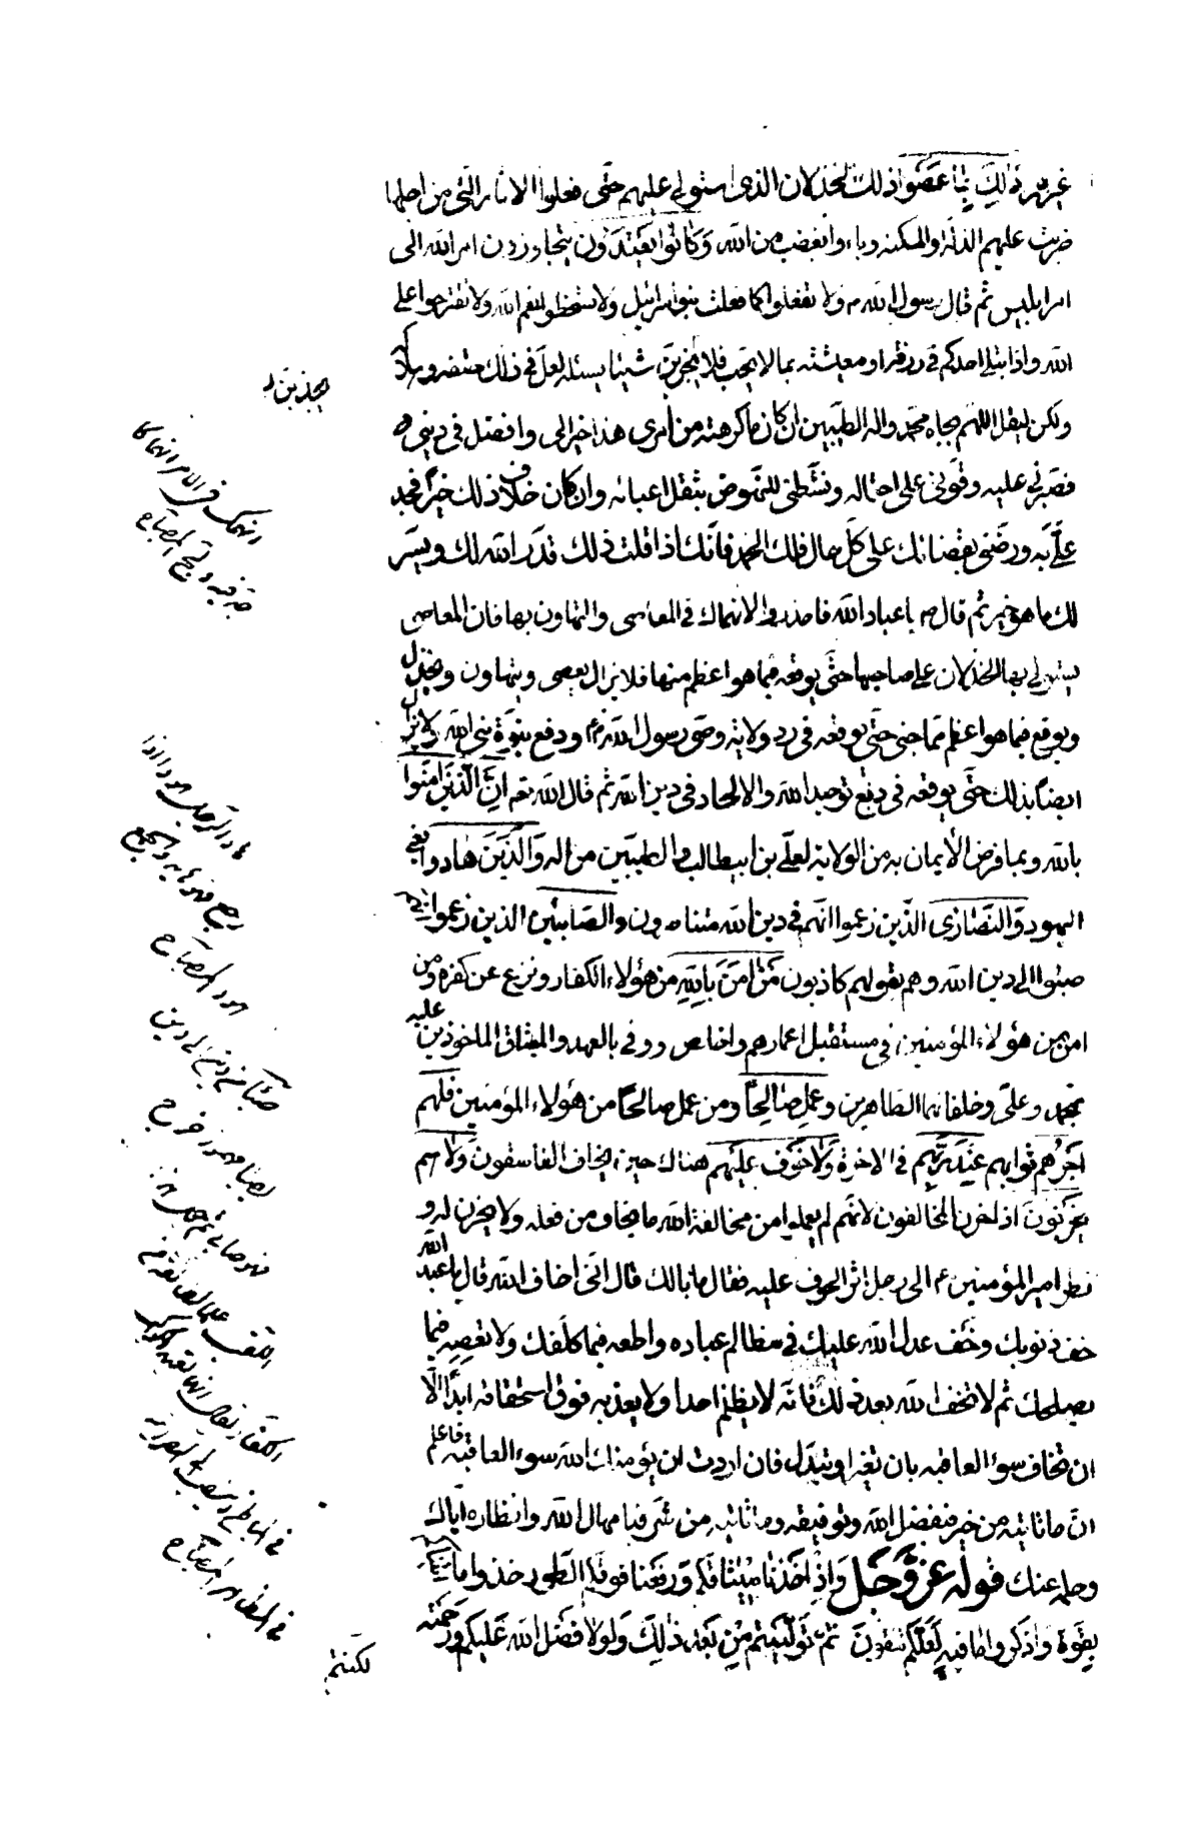 غيرهم ذٰلِكَ بِمٰا عَصَوْا ذلك الخذلان الذى استولى عليهم حتّى فعلوا الاثام التى من اجلها
ضربت عليهم الذلة والمسكنه وباءوا بغضب من الله وَكٰانُوا يَعْتَدُونَ يتجاوزون امر الله الى
امر ابليس ثم قال رسول الله ص ولا تفعلوا كما فعلت بنو اسرائيل ولا تسخطوا لنعم الله ولا تقترحوا على
الله واذا ابتلى احدكم فى رزقه او معيشته بما لا يحب فلا شيئا يسئله لعل فى ذلك حتفه وهلاكه
ولكن ليقل اللهم بجاه محمد واله الطيبين ان كان ما كرهته من امرى هذا خيرا لى وافضل فى دينى
فصبرنى عليه وقونى على احتماله ونشّطنى للنهوض بثقل اعبائه وان كان خلاف ذلك خيرا فجد
علىّ به ورضّنى بقضائك على كلّ حال فلك الحمد فانّك اذا قلت ذلك قدّر الله لك ويسّر
لك ما هو خير ثم قال ص يا عباد الله فاحذروا الانهماك فى المعاصى والتهاون بها فان المعاصى
يستولى بها الخذلان على صاحبها حتّى يوقعه فيما هو اعظم منها فلا يزال يعصى ويتهاون ويخذل
ويوقع فيما هو اعظم ممّا جنى حتّى يوقعه فى رد ولاية وصى رسول الله ص ودفع نبوّة نبى الله ولا يزال
ايضا بذلك حتّى يوقعه فى دفع توحيد الله والالحاد فى دين الله ثم قال الله تعه اِنَّ الَّذينَ اٰمَنُوا
بالله وبما فرض الايمان به من الولاية لعلىّ بن ابيطالب والطيبين من اله وَالَّذينَ هٰادُوا يعنى
اليهود وَالنَّصٰارى الذين زعموا انهم فى دين الله متناصرون وَالصّابِئينَ الذين زعموا انهم
صبئوا الى دين الله وهم بقولهم كاذبون مَنْ اٰمَنَ بِاللهِ من هؤلاء الكفار ونزع عن كفره ومن
امن من هؤلاء المؤمنين فى مستقبل اعمارهم واخلص ووفى بالعهد والميثاق الماخوذين عليه
لمحمد وعلى وخلفائهما الطاهرين وَعَمِلَ صٰالِحًا ومن عمل صالحا من هؤلاء المؤمنين فَلَهُمْ
اَجْرُهُمْ ثوابهم عِنْدَ رَبِّهِمْ فى الاخرة وَلٰا خَوْفٌ عَلَيْهِمْ هناك حين يخاف الفاسقون وَلٰا هُمْ
يَحْزَنُونَ اذا حزن المخالفون لانهم لم يعملوا من مخالفة الله ما يخاف من فعله ولا يحزن له و
نظر امير المؤمنين ع الى رجل اثر الخوف عليه فقال ما بالك قال انى اخاف الله قال يا عبد الله
خف ذنوبك وخف عدل الله عليك فى مظالم عباده واطعه فيما كلّفك ولا تعصه فيما
يصلحك ثم لا تخف الله بعد ذلك فانّه لا يظلم احدا ولا يعذبه فوق استحقاقه ابدًا الّا
ان تخاف سوء العاقبه بان تغير او تبدّل فان اردت ان يؤمنك الله سوء العاقبة فاعلم
انّ ما تاتيه من خير فبفضل الله وتوفيقه وما تاتيه من شر فبامهال الله وانظاره اياك
وحلمه عنك قوله عزّ وجلّ وَاِذْ اَخَذْنٰا مِيثٰاقَكُمْ وَرَفَعْنٰا فَوْقَكُمُ الطُّورَ خذوا ما اٰتَيْنٰاكُمْ
بِقُوَّةٍ وَاذْكُرُوا مٰا فيهِ لَعَلَّكُمْ تَتَّقُونَ ثُمَّ تَوَلَّيْتُمْ مِنْ بَعْدِ ذٰلِكَ وَلَوْلٰا فَضْلُ اللهِ عَلَيْكُمْ وَرَحْمَتُهُ
لكنتم
انهمك فى الامر انهماكا
جدّ فيه ولجّ المصباح